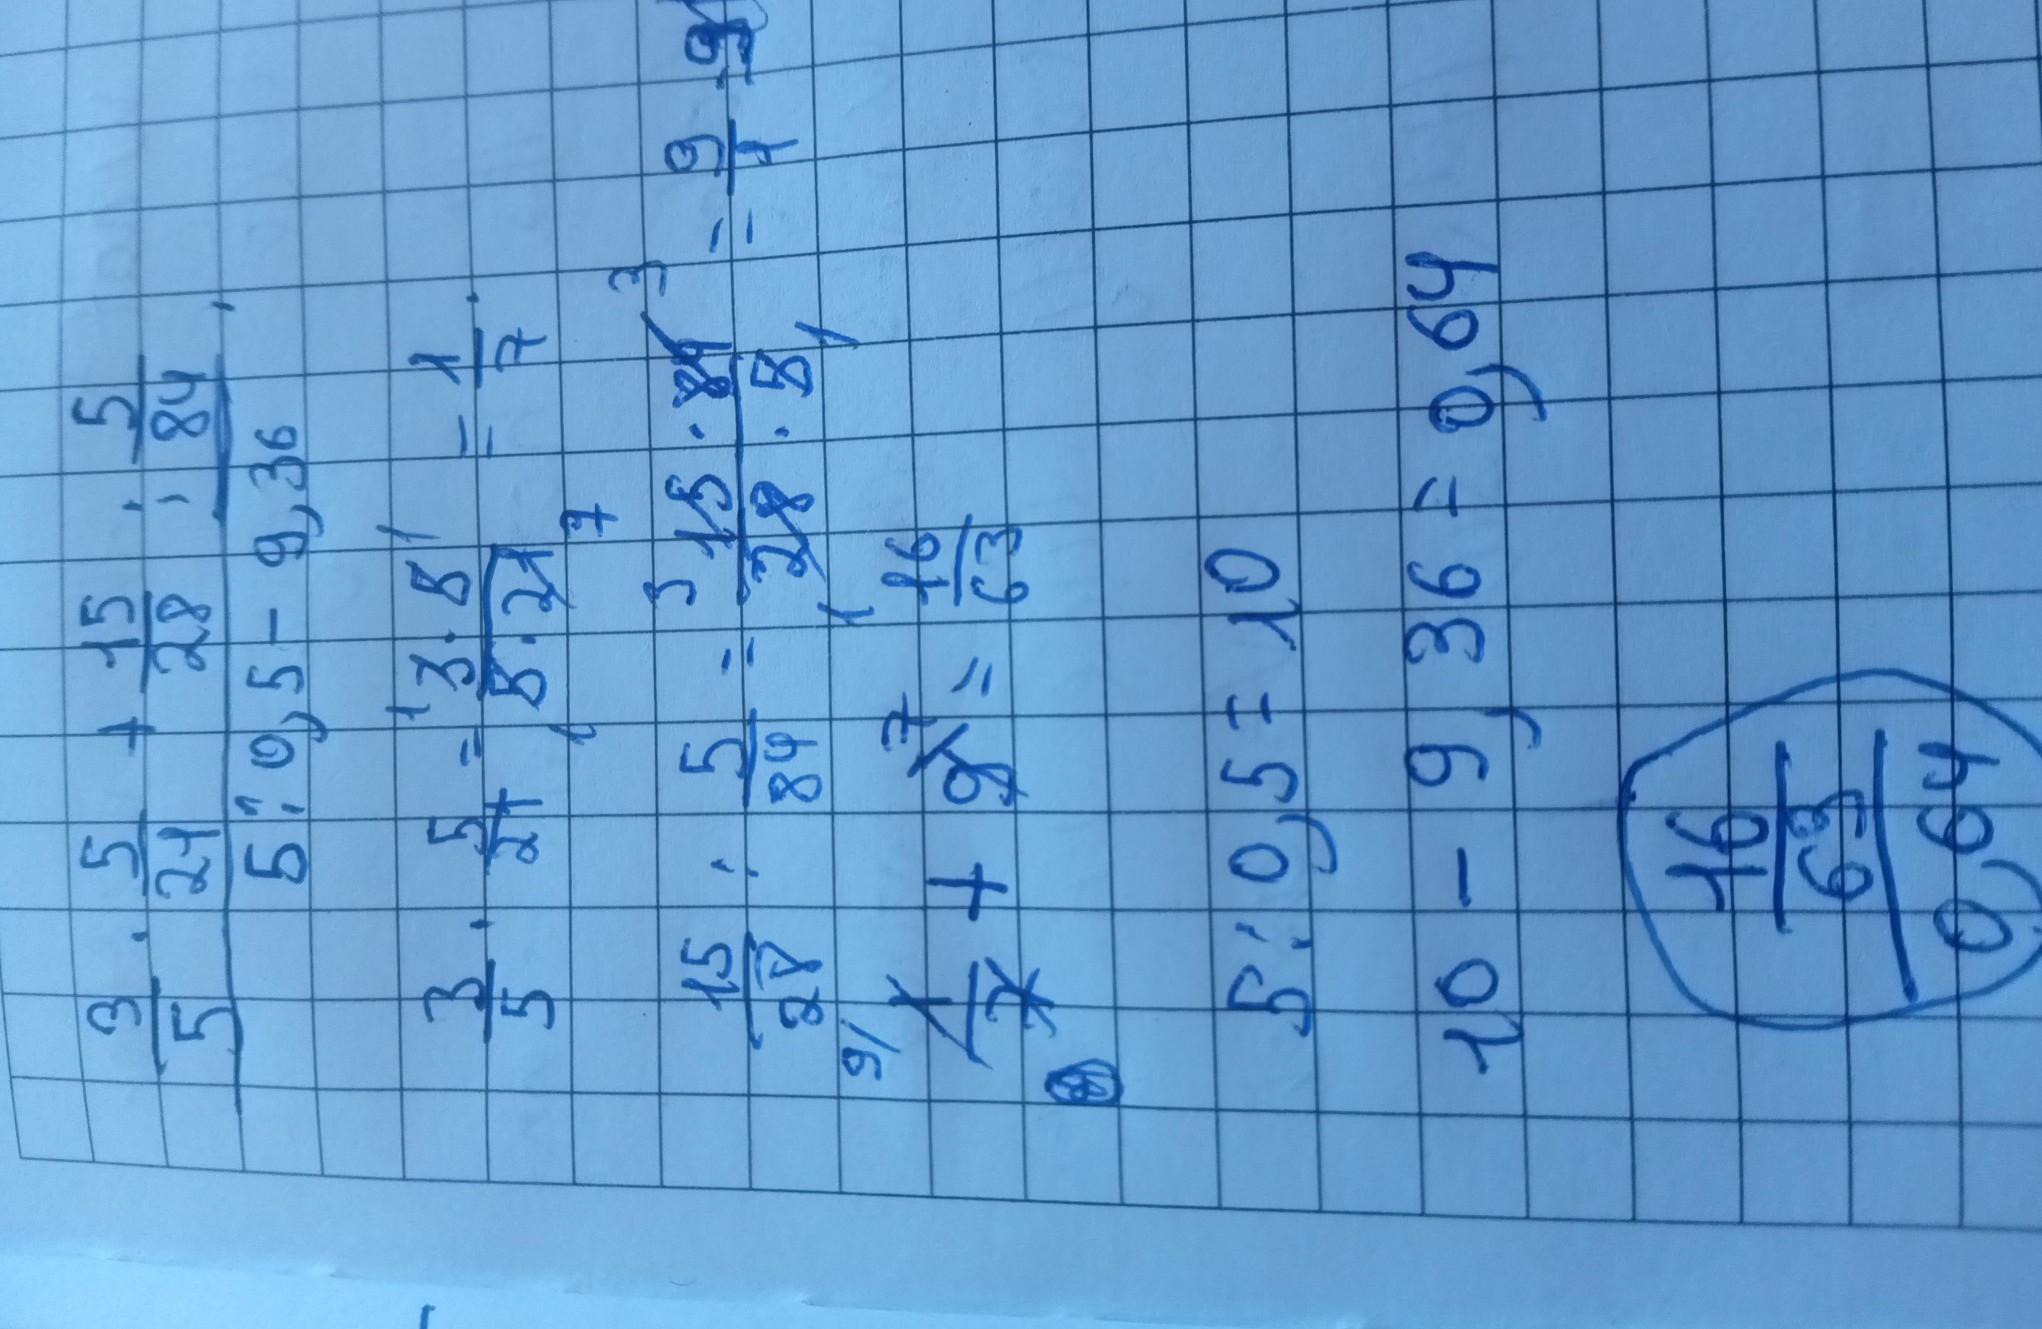 3/5 · 5/21 + 15/28 : 5/84
5 : 0,5 - 9,36
3/5 · 5/21 = 3·5/5·21 = 1/7
1 1
1 7
15/28 : 5/84 = 15·84/28·5 = 9/1
3 3
1 1
1/7 + 9 = 16/63
9/ 7
5 : 0,5 = 10
10 - 9,36 = 0,64
16/63
0,64